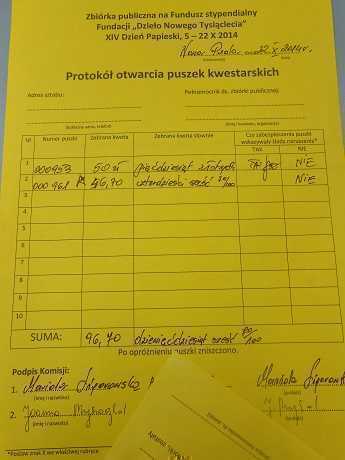 Zbiórka publiczna na Fundusz stypendialny
Fundacji „Dzieło Nowego Tysiąclecia”
XIV Dzień Papieski, 5 – 22 X 2014
Protokół otwarcia puszek kwestarskich
Adres sztabu: Pełnomocnik ds. zbiórki publicznej:
Lp Numer puszki Zebrana kwota Zebrana kwota słownie Czy zabezpieczenia puszki wskazywały ślady naruszenia?*
TAK NIE
1 000953 50 zł pięćdziesiąt złotych NIE
2 000961 46,70 czterdzieści sześć 70/100 NIE
3
4
5
6
7
8
9
10
SUMA: 96,70 dziewięćdziesiąt sześć 70/100
Po opróżnieniu puszki zniszczono.
Podpis Komisji:
1. Mariola
(imię i nazwisko)
2. Joanna
(imię i nazwisko)
*Postaw znak X we właściwej rubryce